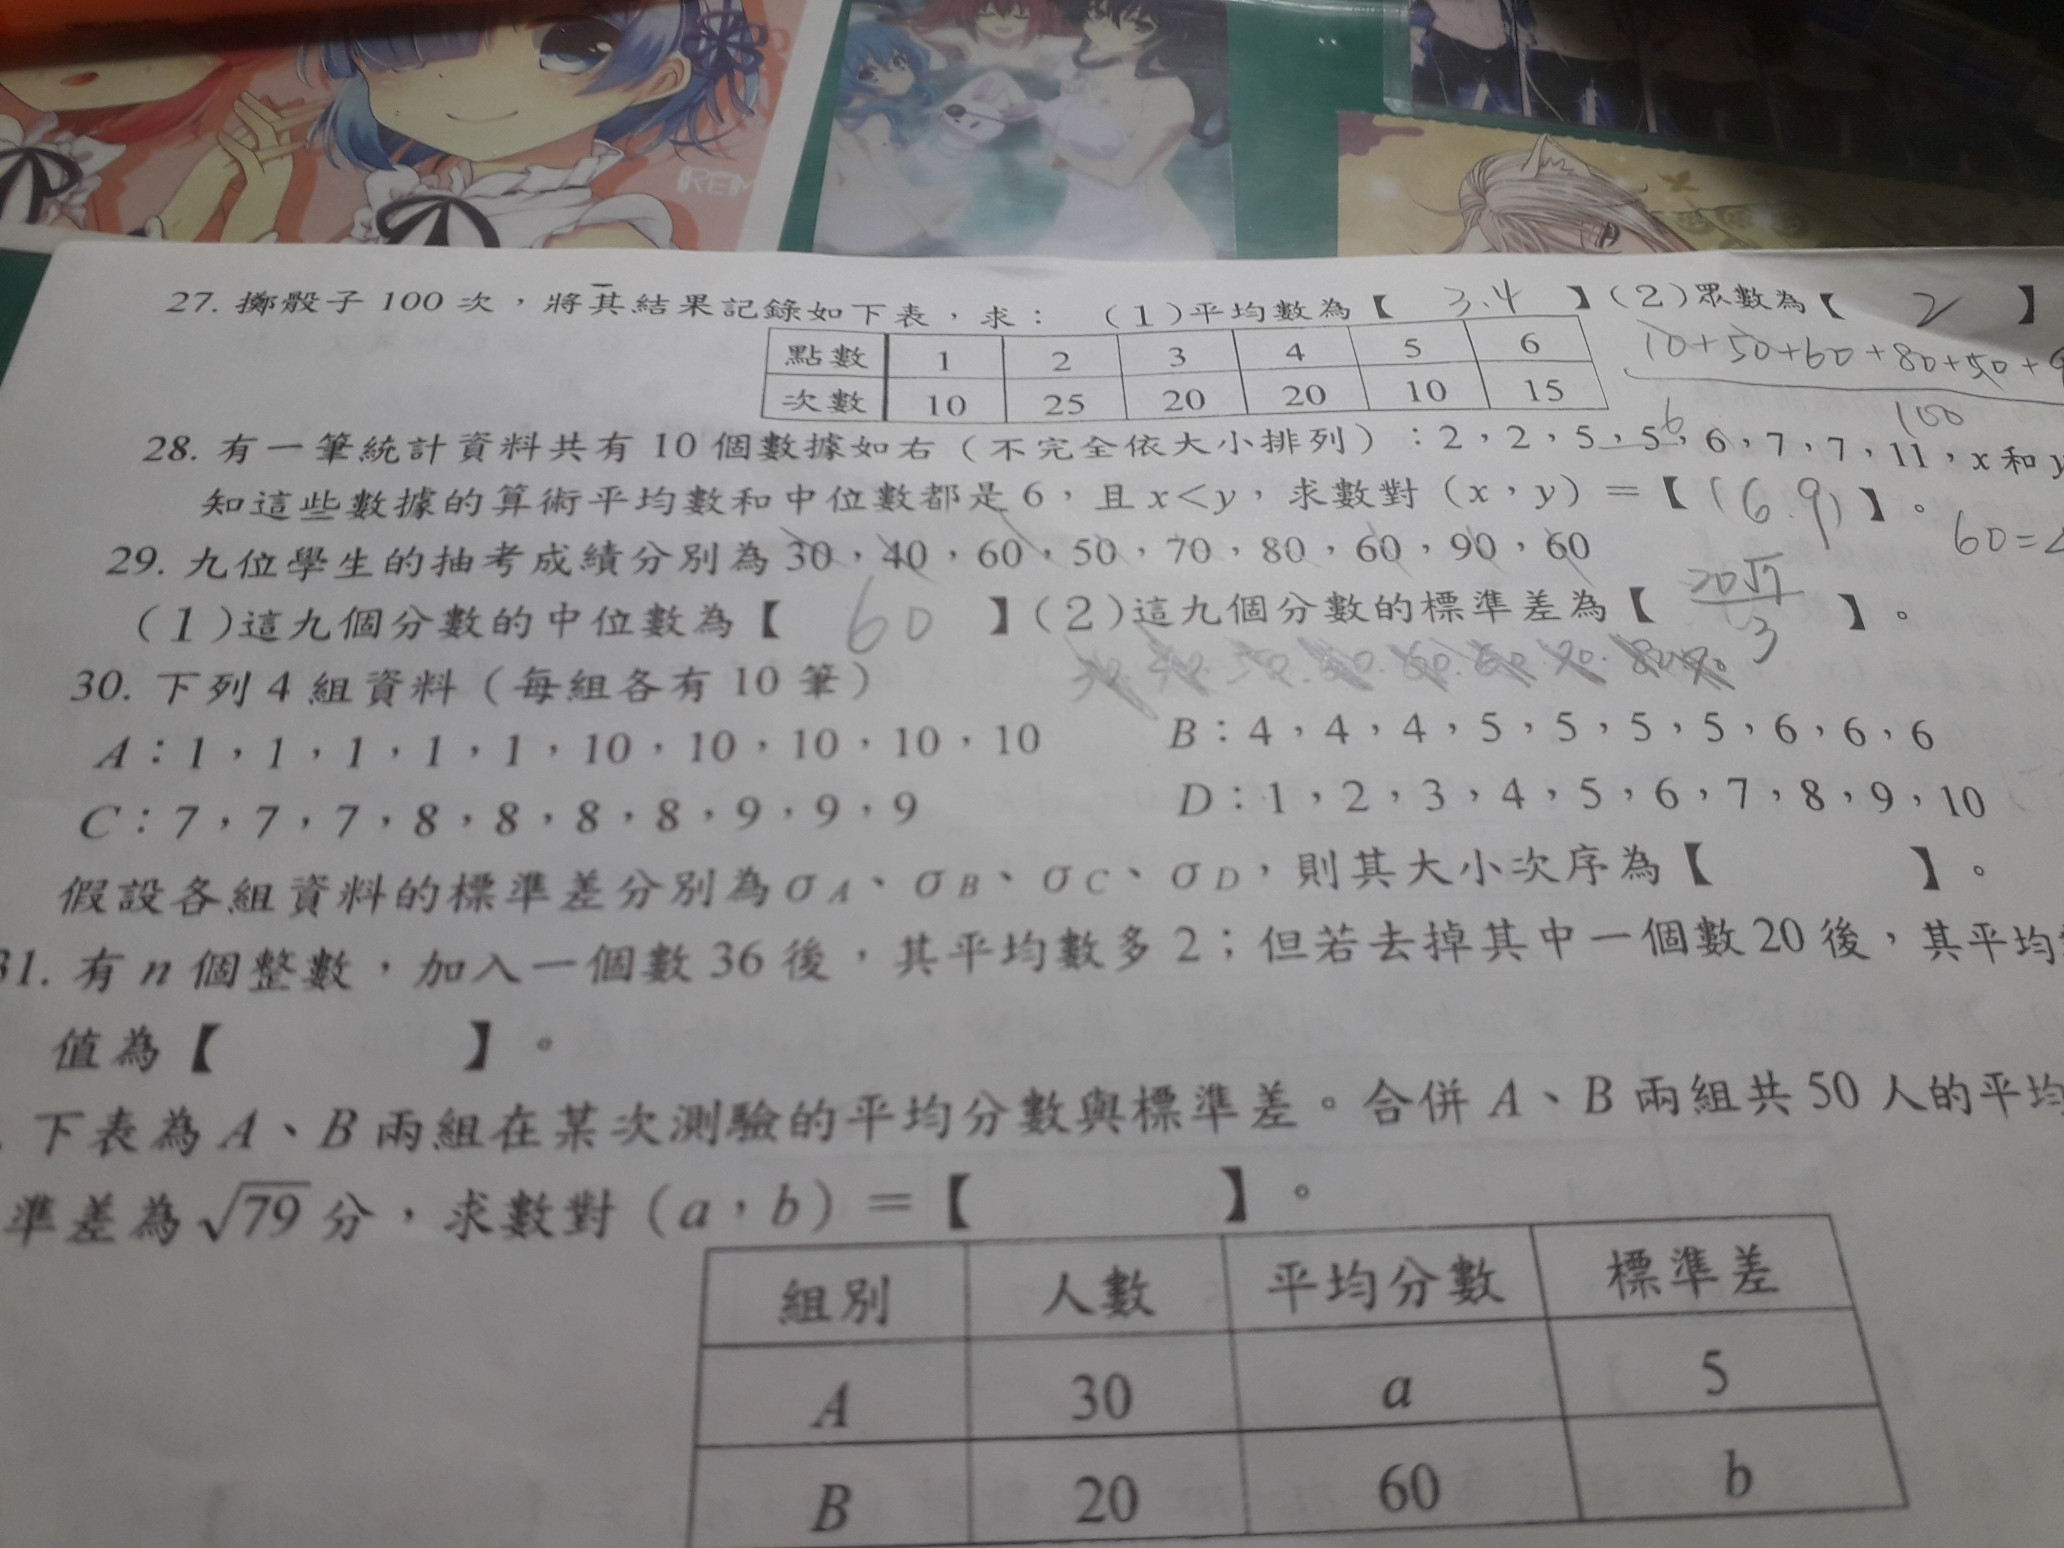 REM
27. 擲骰子 100 次，將其結果記錄如下表，求： (1)平均數為【 3.4 】(2)眾數為【 2 】
點數 1 2 3 4 5 6
次數 10 25 20 20 10 15
10+50+60+80+50+9
100
28. 有一筆統計資料共有 10 個數據如右（不完全依大小排列）：2，2，5，5，6，7，7，11，x 和 y
6
知這些數據的算術平均數和中位數都是 6，且 x＜y，求數對（x，y）＝【 (6.9) 】。
60=
29. 九位學生的抽考成績分別為 30，40，60，50，70，80，60，90，60
(1)這九個分數的中位數為【 60 】(2)這九個分數的標準差為【 】。
30. 下列 4 組資料（每組各有 10 筆）
A：1，1，1，1，1，10，10，10，10，10 B：4，4，4，5，5，5，5，6，6，6
C：7，7，7，8，8，8，8，9，9，9 D：1，2，3，4，5，6，7，8，9，10
假設各組資料的標準差分別為 σA、σB、σC、σD，則其大小次序為【 】。
31. 有 n 個整數，加入一個數 36 後，其平均數多 2；但若去掉其中一個數 20 後，其平均
值為【 】。
. 下表為 A、B 兩組在某次測驗的平均分數與標準差。合併 A、B 兩組共 50 人的平均
準差為 √79 分，求數對（a，b）＝【 】。
組別 人數 平均分數 標準差
A 30 a 5
B 20 60 b